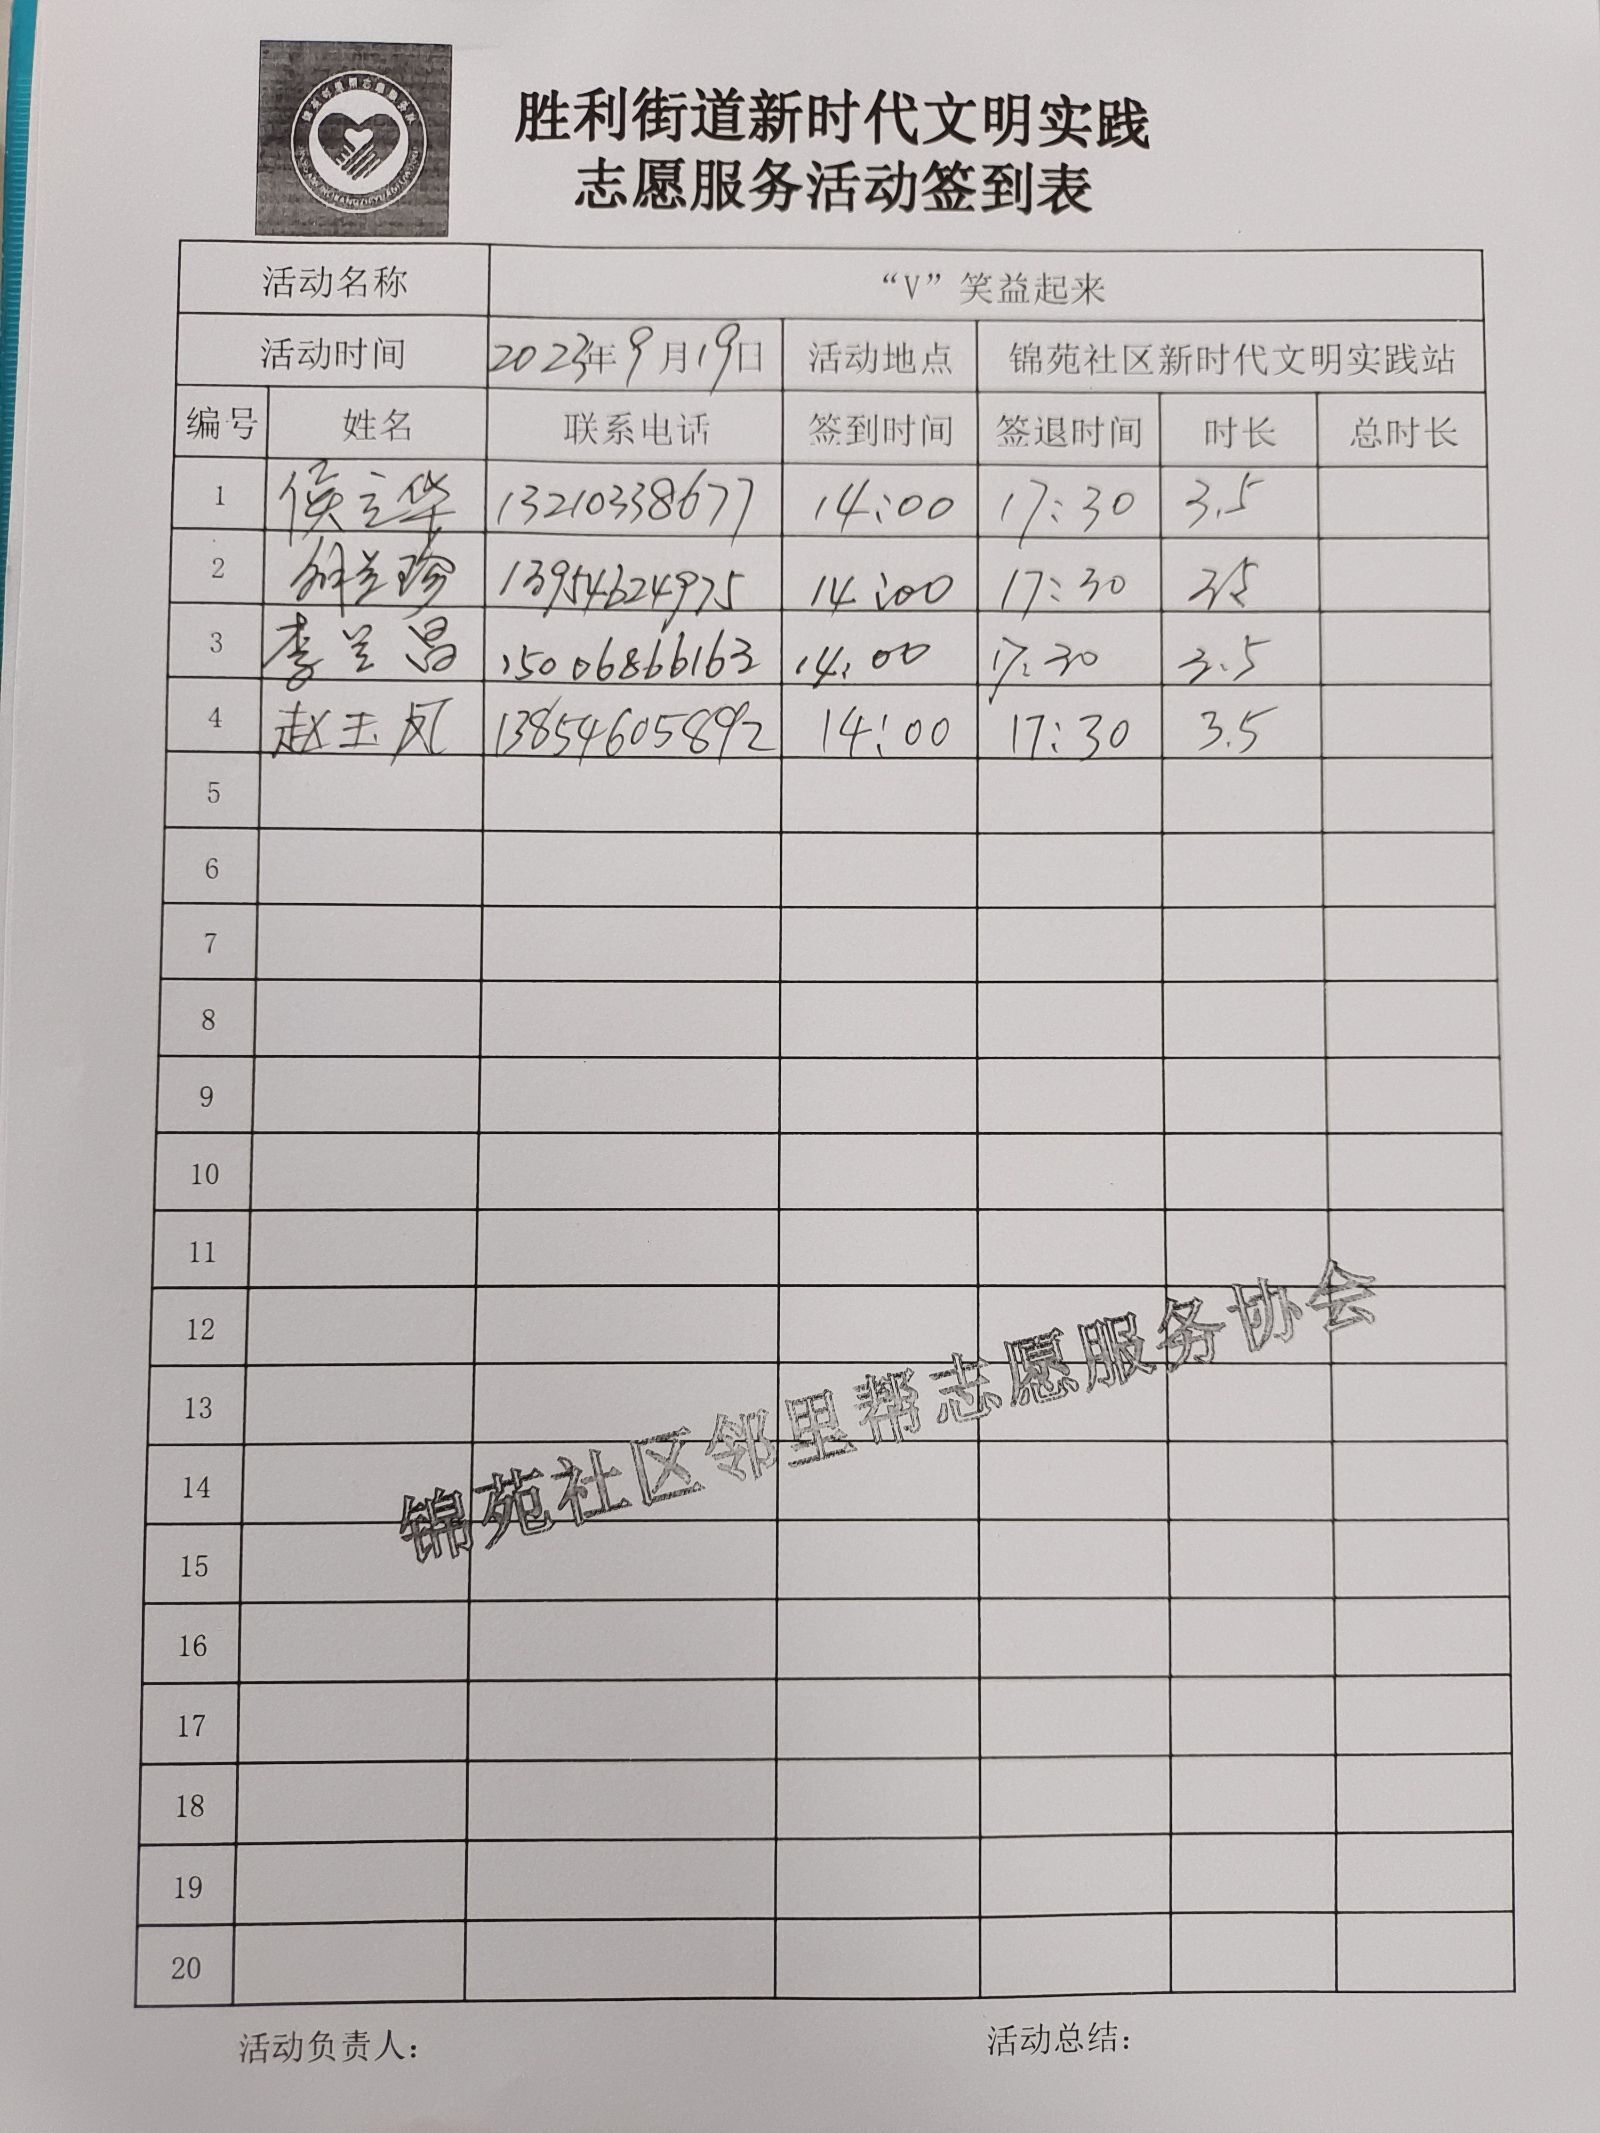 胜利街道新时代文明实践
志愿服务活动签到表
活动名称 “V”笑益起来
活动时间 2023年9月19日 活动地点 锦苑社区新时代文明实践站
编号 姓名 联系电话 签到时间 签退时间 时长 总时长
1 侯立华 13210338677 14:00 17:30 3.5
2 兰珍 13954624975 14:00 17:30 3.5
3 李兰昌 15006866163 14:00 17:30 3.5
4 赵玉凤 13854605892 14:00 17:30 3.5
5
6
7
8
9
10
11
12
13
14
15
16
17
18
19
20
锦苑社区邻里帮志愿服务协会
活动负责人： 活动总结：